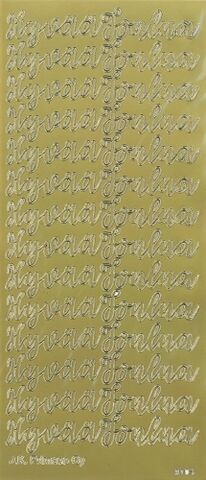 Hyvää Joulua
Hyvää Joulua
Hyvää Joulua
Hyvää Joulua
Hyvää Joulua
Hyvää Joulua
Hyvää Joulua
Hyvää Joulua
Hyvää Joulua
Hyvää Joulua
Hyvää Joulua
Hyvää Joulua
Hyvää Joulua
Hyvää Joulua
Oy